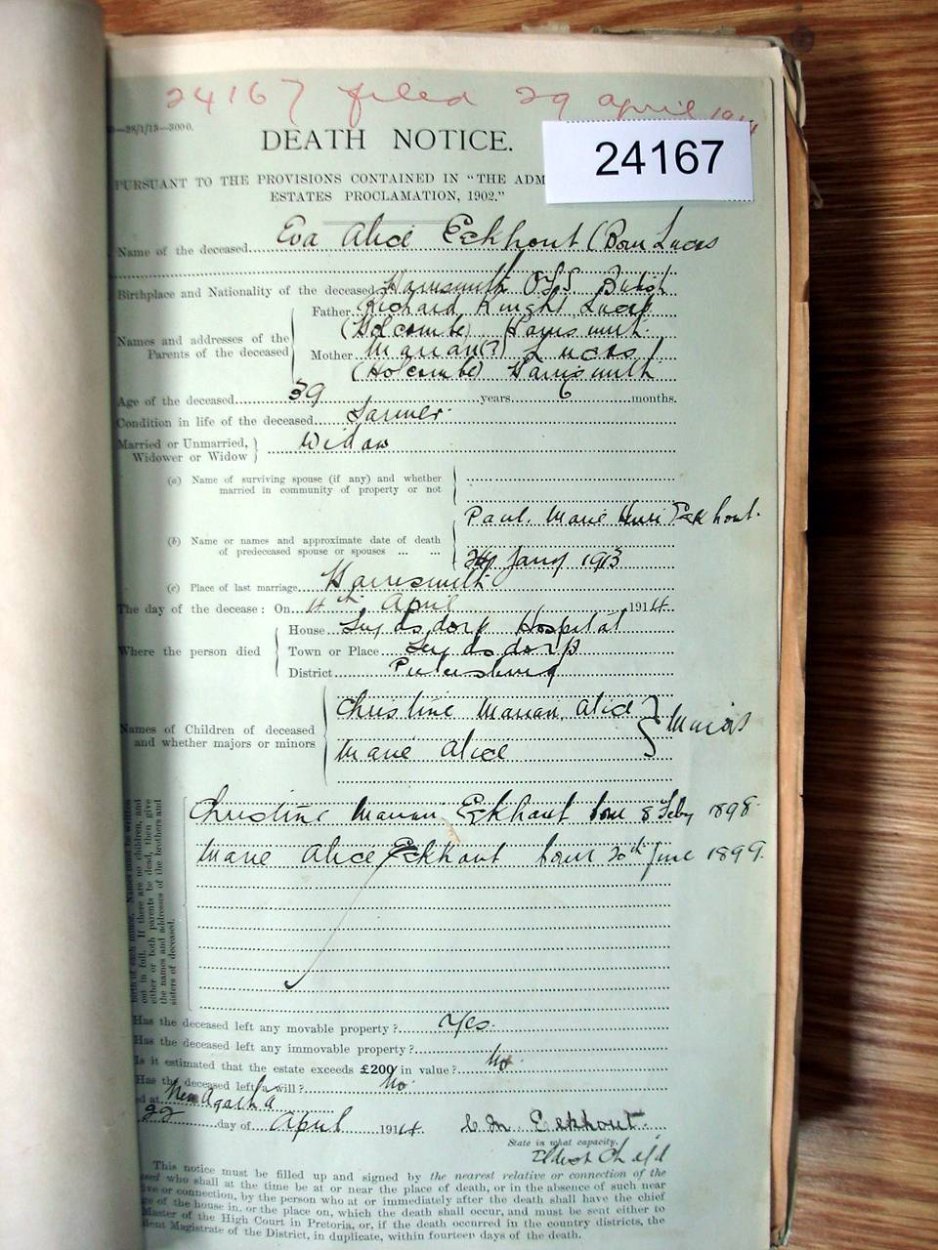 24167 filed 29 april 1914
—28/1/13—3000.
DEATH NOTICE.
24167
PURSUANT TO THE PROVISIONS CONTAINED IN "THE ADM
ESTATES PROCLAMATION, 1902."
Name of the deceased Eva Alice Eckhout (Born Lucas
Birthplace and Nationality of the deceased Harrismith O.F.S British
Names and addresses of the Parents of the deceased
Father Richard Knight Lucas
(Holcombe) Harrismith.
Mother Marian(?) Lucas
(Holcombe) Harrismith
Age of the deceased 39 years 6 months.
Condition in life of the deceased Farmer
Married or Unmarried, Widow
Widower or Widow
(a) Name of surviving spouse (if any) and whether
married in community of property or not
Paul Marie Henri Eckhout.
(b) Name or names and approximate date of death
of predeceased spouse or spouses ... ... Jany 1913
(c) Place of last marriage Harrismith
The day of the decease: On 4th April 1914
Where the person died
House Leydsdorp Hospital
Town or Place Leydsdorp
District Pietersburg
Names of Children of deceased
and whether majors or minors
Christine Marian Alice } Minors
Marie Alice
Christine Marian Eckhout born 8 Feby 1898
Marie Alice Eckhout born 20th June 1899.
birth of each minor. Names must be written
out in full. If there are no children, and
either or both parents be dead, then give
the names and addresses of the brothers and
sisters of deceased.
Has the deceased left any movable property? Yes.
Has the deceased left any immovable property?
Is it estimated that the estate exceeds £200 in value? No
Has the deceased left a will? No.
ed at New Agatha
22 day of April 1914. C M Eekhout.
State in what capacity.
Eldest Child
This notice must be filled up and signed by the nearest relative or connection of the
sed who shall at the time be at or near the place of death, or in the absence of such near
ive or connection, by the person who at or immediately after the death shall have the chief
ge of the house in, or the place on, which the death shall occur, and must be sent either to
Master of the High Court in Pretoria, or, if the death occurred in the country districts, the
dent Magistrate of the District, in duplicate, within fourteen days of the death.